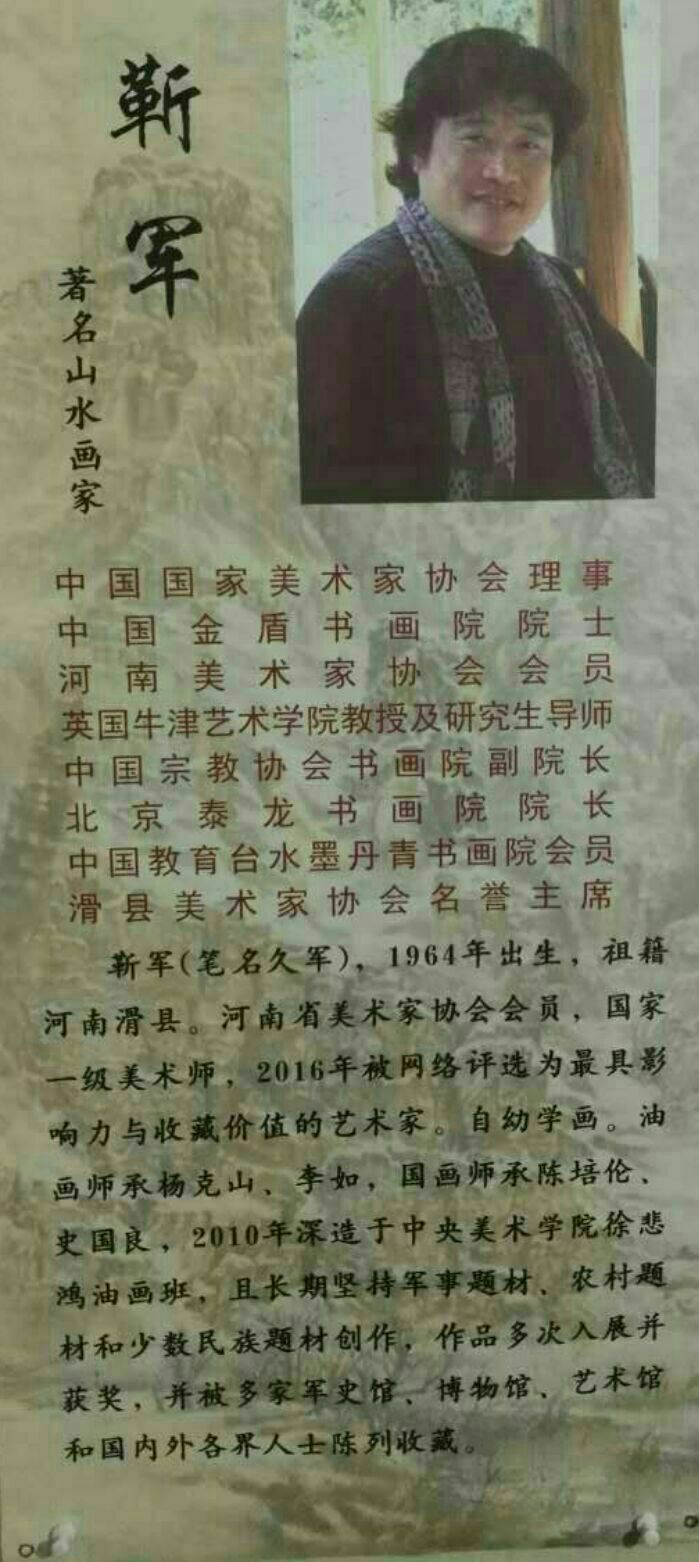 靳军
著名山水画家
中国国家美术家协会理事
中国金盾书画院院士
河南美术家协会会员
英国牛津艺术学院教授及研究生导师
中国宗教协会书画院副院长
北京泰龙书画院院长
中国教育台水墨丹青书画院会员
滑县美术家协会名誉主席
靳军(笔名久军)，1964年出生，祖籍
河南滑县。河南省美术家协会会员，国家
一级美术师，2016年被网络评选为最具影
响力与收藏价值的艺术家。自幼学画。油
画师承杨克山、李如，国画师承陈培伦、
史国良，2010年深造于中央美术学院徐悲
鸿油画班，且长期坚持军事题材、农村题
材和少数民族题材创作，作品多次入展并
获奖，并被多家军史馆、博物馆、艺术馆
和国内外各界人士陈列收藏。